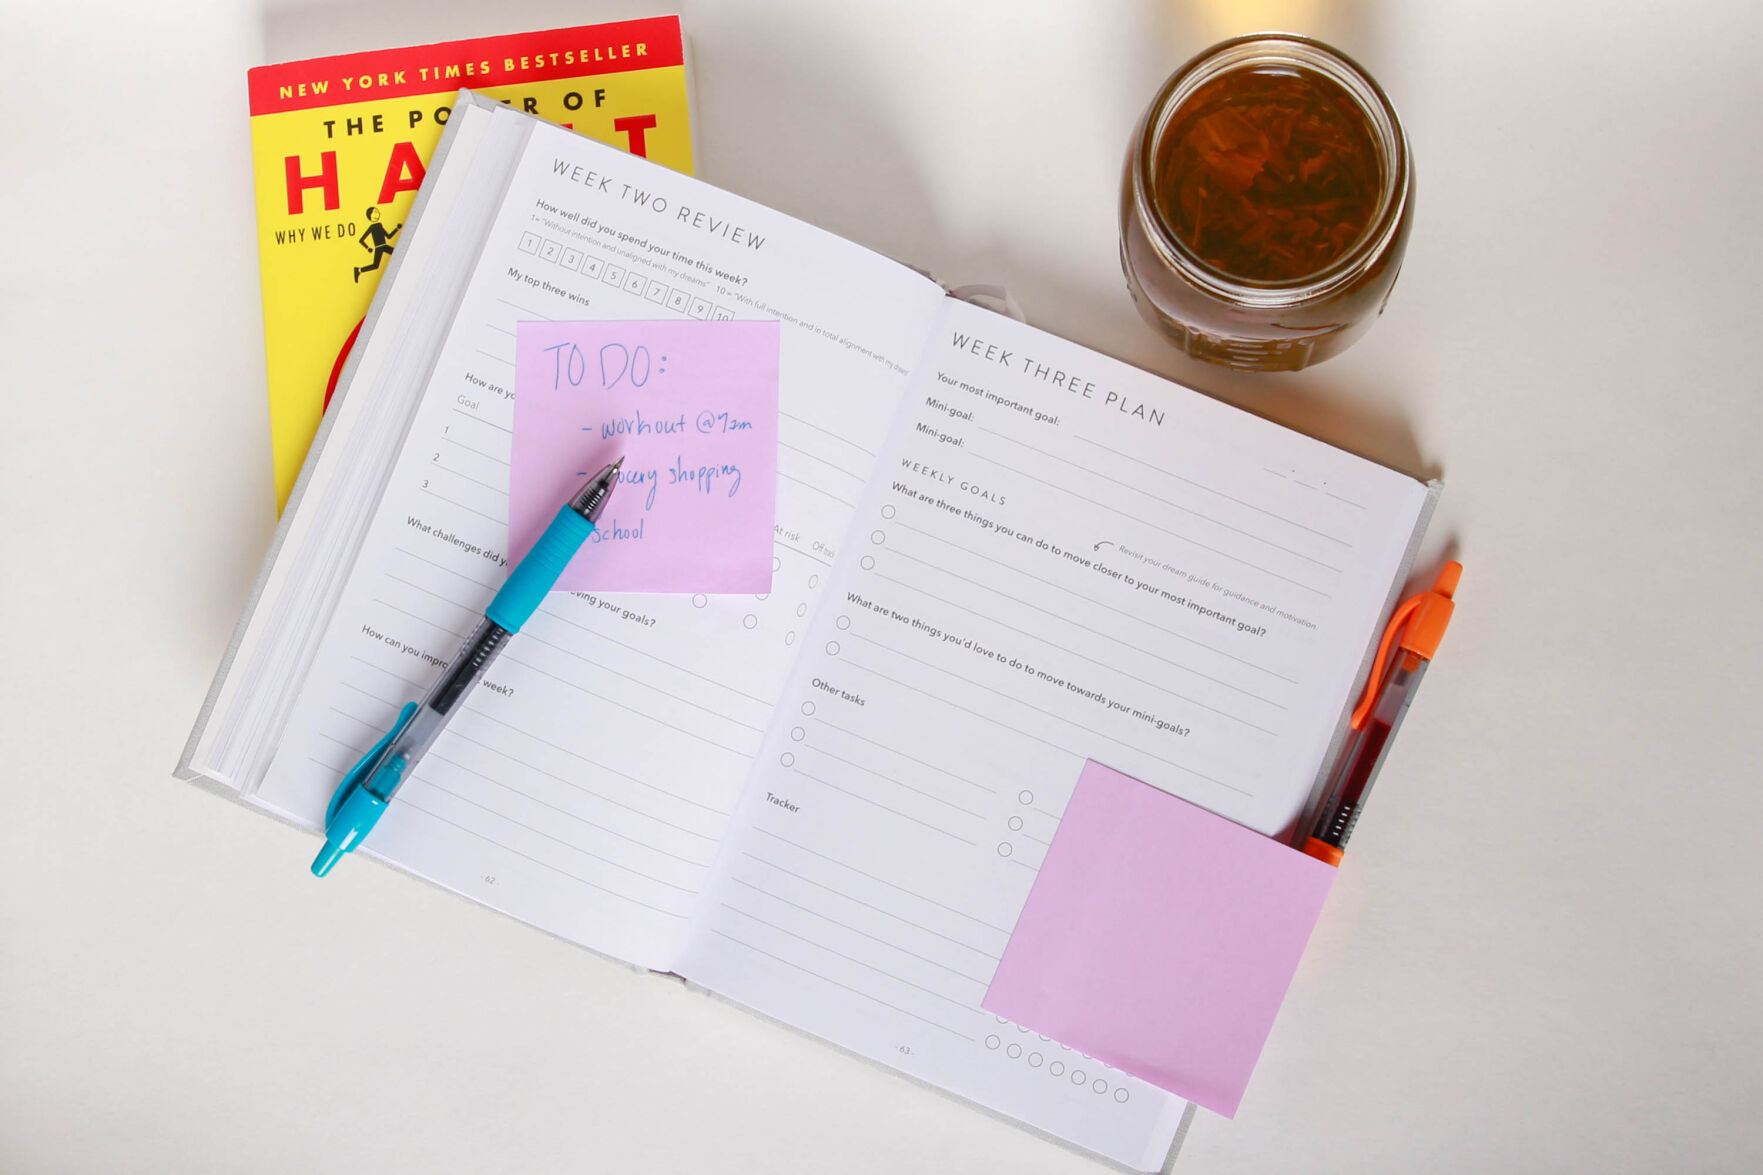 NEW YORK TIMES BESTSELLER
THE POWER OF
HABIT
WHY WE DO
WEEK TWO REVIEW
How well did you spend your time this week?
1= "Without intention and unaligned with my dreams" 10 = "With full intention and in total alignment with my
1 2 3 4 5 6 7 8 9 10
My top three wins
How are
Goal
At risk
1
2
3
What challenges did
your goals?
How can you
week?
- 62 -
TO DO:
- workout @ 7am
- grocery shopping
school
WEEK THREE PLAN
Your most important goal:
Mini-goal:
Mini-goal:
WEEKLY GOALS
What are three things you can do to move closer to your most important goal?
Revisit your dream guide for guidance and motivation.
What are two things you'd love to do to move towards your mini-goals?
Other tasks
Tracker
- 63 -